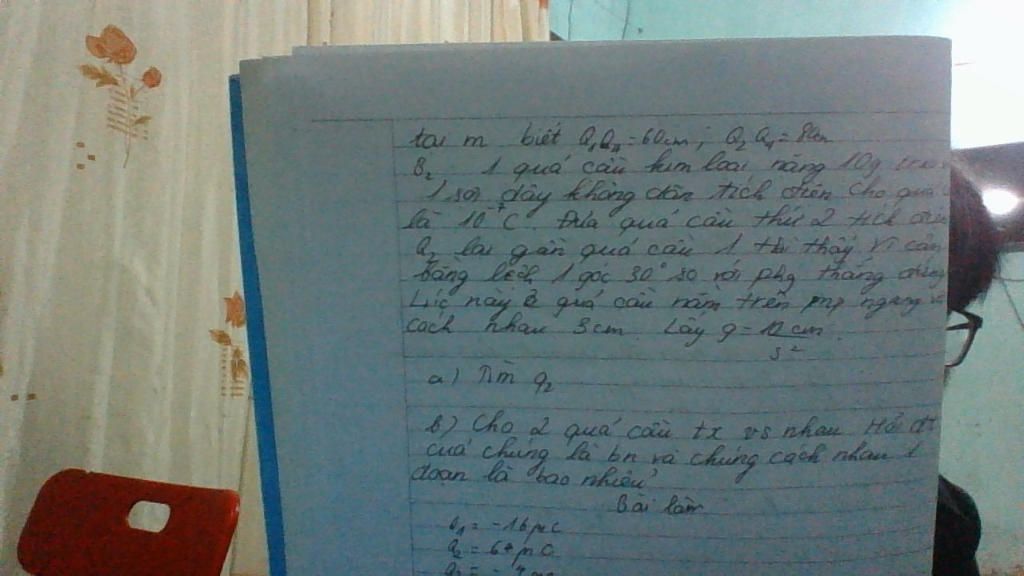 tại m biết Q₁Q₄=60cm; Q₂Q₄=80cm
B₂ 1 quả cầu kim loại nặng 10g
1 sợi dây không dãn tích điện cho quả
là 10⁻⁷C. Đưa quả cầu thứ 2 tích điện
Q₂ lại gần quả cầu 1 thì thấy
bằng lệch 1 góc 30° so với phg thẳng đứng
Lúc này 2 quả cầu nằm trên mp ngang
cách nhau 3cm. Lấy g=10 cm/s².
a) Tìm q₂
b) Cho 2 quả cầu tx vs nhau Hỏi đt
của chúng là bn và chúng cách nhau 1
đoạn là bao nhiêu
Bài làm
Q₁ = -16µC
Q₂ = 64µC